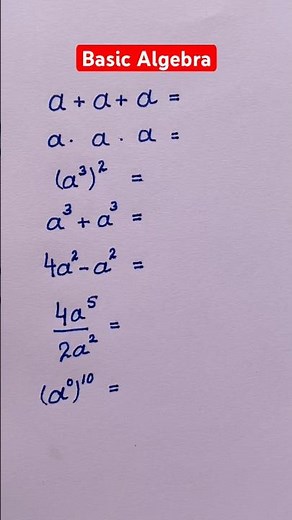 Basic Algebra
a + a + a =
a · a · a =
(a³)² =
a³ + a³ =
4a² - a² =
4a⁵/2a² =
(a⁰)¹⁰ =